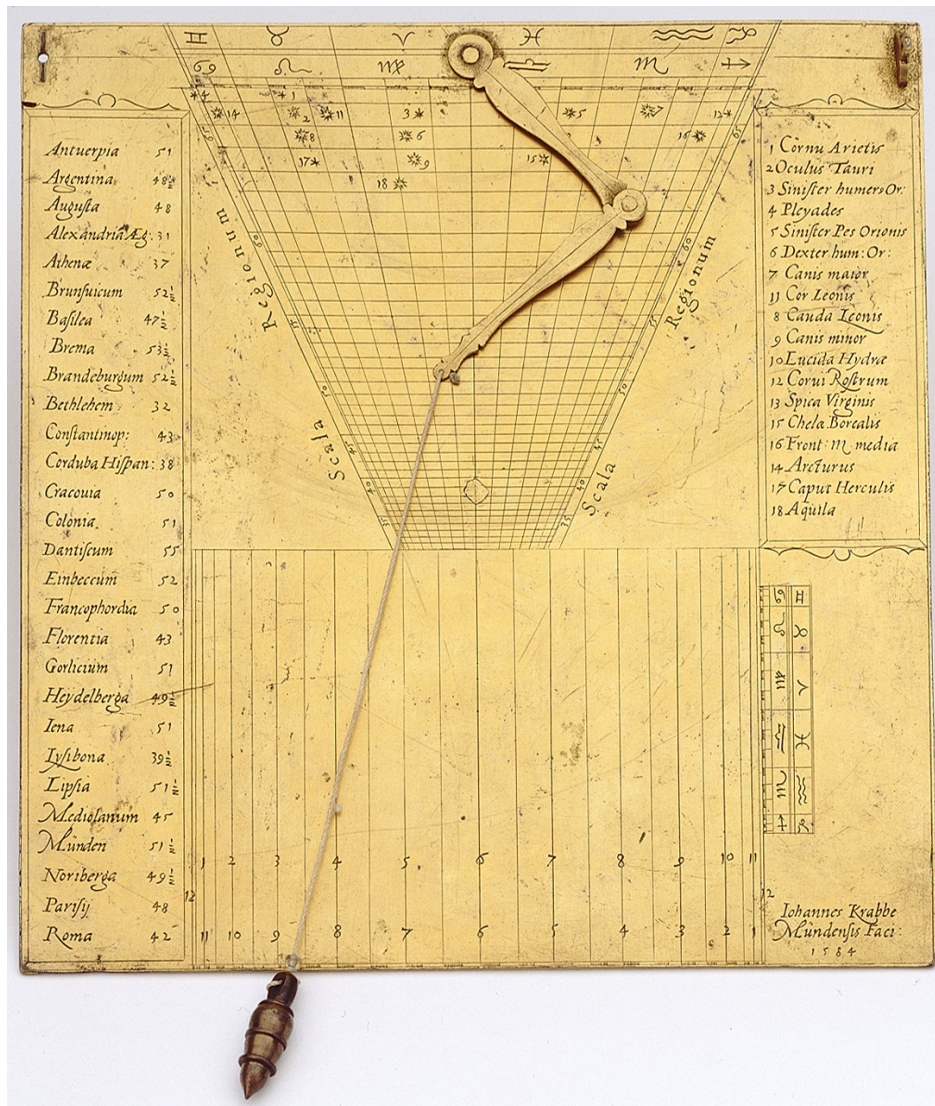 ♊ ♉ ♈ ♓ ♒ ♑
♋ ♌ ♍ ♎ ♏ ♐
4 1
14 2 11 3 5 7 12
8 6 16
17 9 15
18
65 65
60 60
55 55
50 50
45 45
40 40
35 35
Scala Regionum
Scala Regionum
Antuerpia 51
Argentina 48½
Augusta 48
Alexandria Æg. 31
Athenæ 37
Brunsuicum 52½
Basilea 47½
Brema 53½
Brandeburgum 52½
Bethlehem 32
Constantinop: 43
Corduba Hispan: 38
Cracouia 50
Colonia 51
Dantiscum 55
Einbeccum 52
Francophordia 50
Florentia 43
Gorlicium 51
Heydelberga 49½
Iena 51
Lysibona 39½
Lipsia 51½
Mediolanum 45
Münden 51½
Noriberga 49½
Parisij 48
Roma 42
1 Cornu Arietis
2 Oculus Tauri
3 Sinister humer₉ Or:
4 Pleyades
5 Sinister Pes Orionis
6 Dexter hum: Or:
7 Canis maior
11 Cor Leonis
8 Cauda Leonis
9 Canis minor
10 Lucida Hydræ
12 Corui Rostrum
13 Spica Virginis
15 Chela Borealis
16 Front ♏ media
14 Arcturus
17 Caput Herculis
18 Aquila
♋ ♊
♌ ♉
♍ ♈
♎ ♓
♏ ♒
♐ ♑
1 2 3 4 5 6 7 8 9 10 11
12 12
11 10 9 8 7 6 5 4 3 2 1
Iohannes Krabbe
Mündensis Faci:
1584